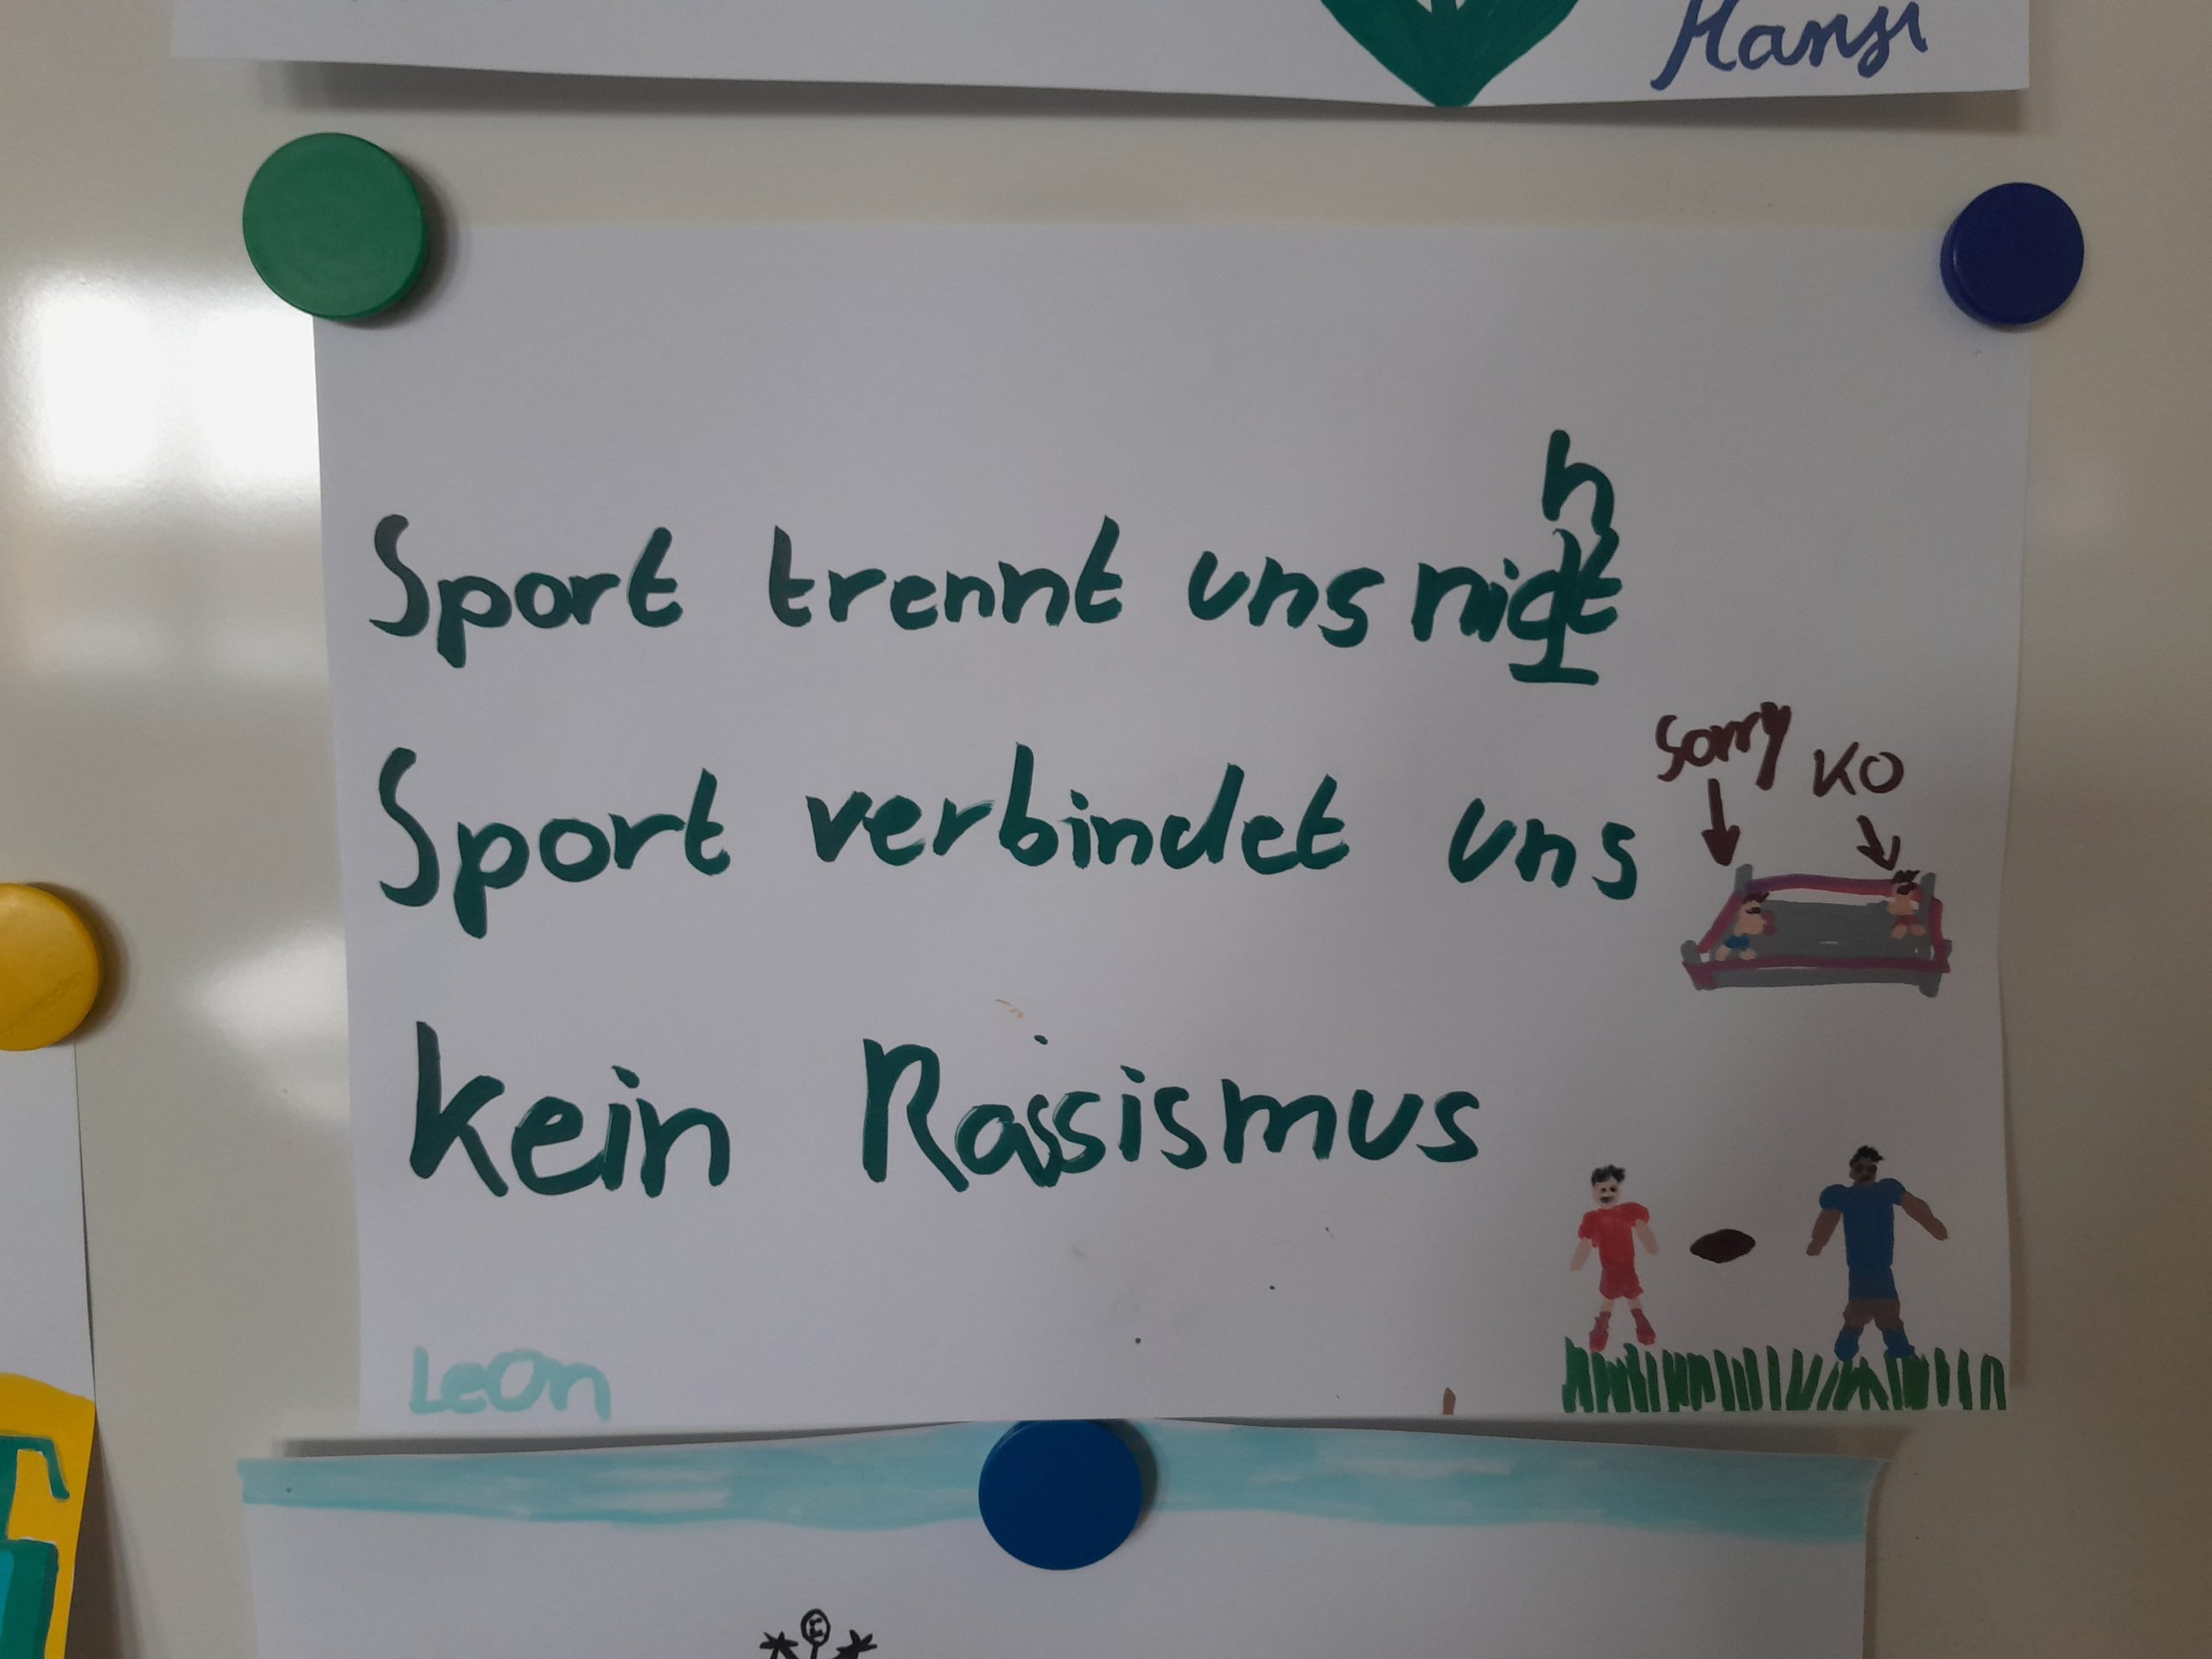 Hansi
Sport trennt uns nicht
Sport verbindet uns
sorry KO
kein Rassismus
Leon